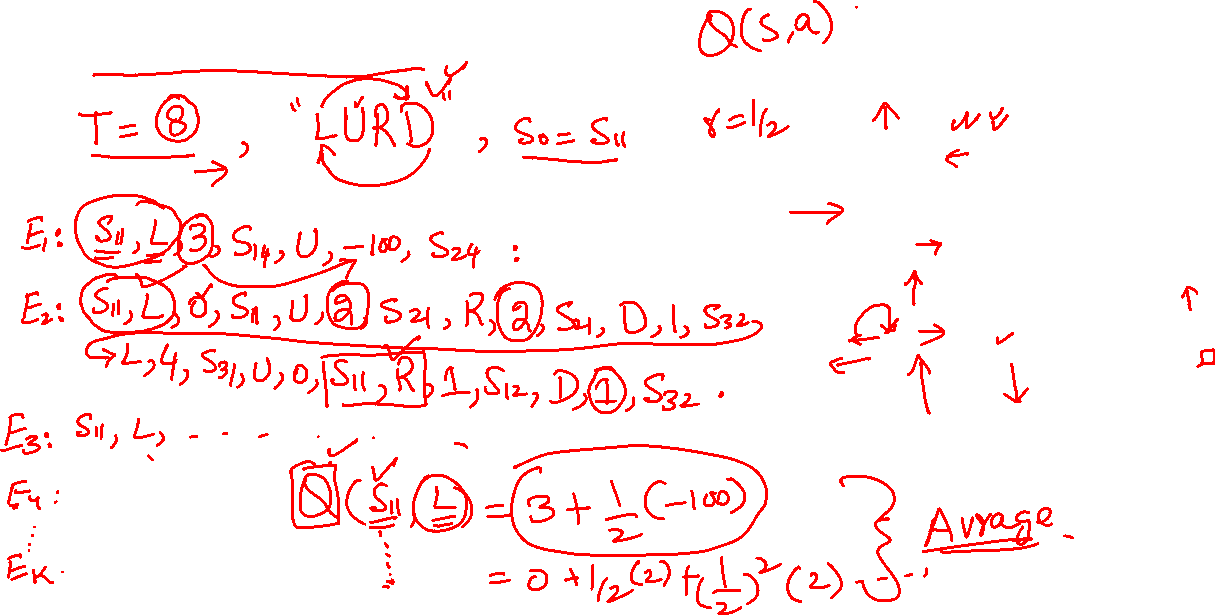 Q(S,a)
T = 8, "LURD", S₀ = S₁₁ γ = 1/2
E₁: S₁₁, L, 3, S₁₄, U, -100, S₂₄ :
E₂: S₁₁, L, 0, S₁₁, U, 2 S₂₁, R, 2, S₄₁, D, 1, S₃₂,
L, 4, S₃₁, U, 0, S₁₁, R, 1, S₁₂, D, 1, S₃₂ .
E₃: S₁₁, L, - - - - . . .
E₄ :
Q(S₁₁, L) = 3 + 1/2 (-100)
Avrage
Eₖ.
= 0 + 1/2 (2) + (1/2)² (2) - - .